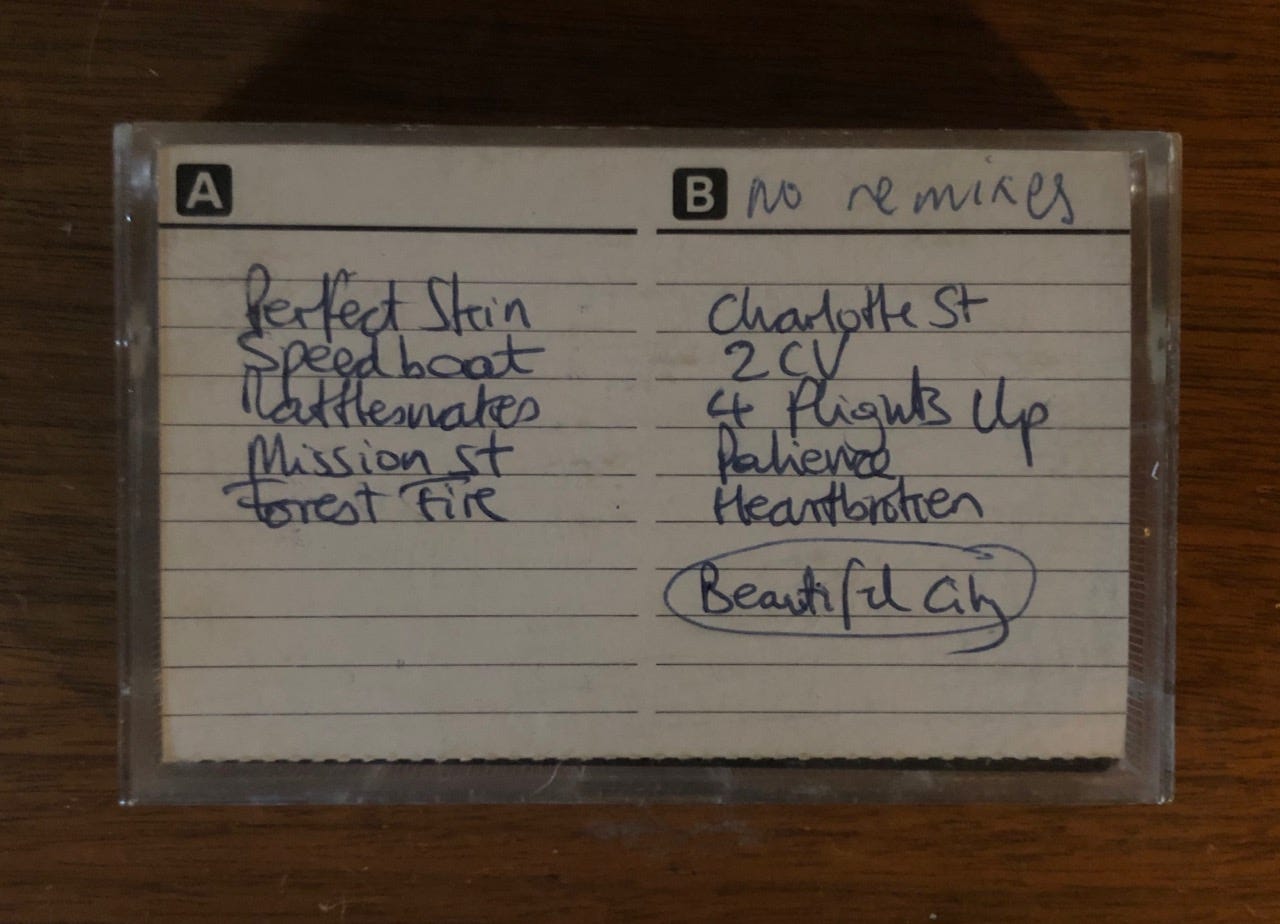 A
Perfect Skin
Speedboat
Rattlesnakes
Mission St
Forest Fire
B no remixes
Charlotte St
2 CV
4 Flights Up
Patience
Heartbroken
Beautiful City